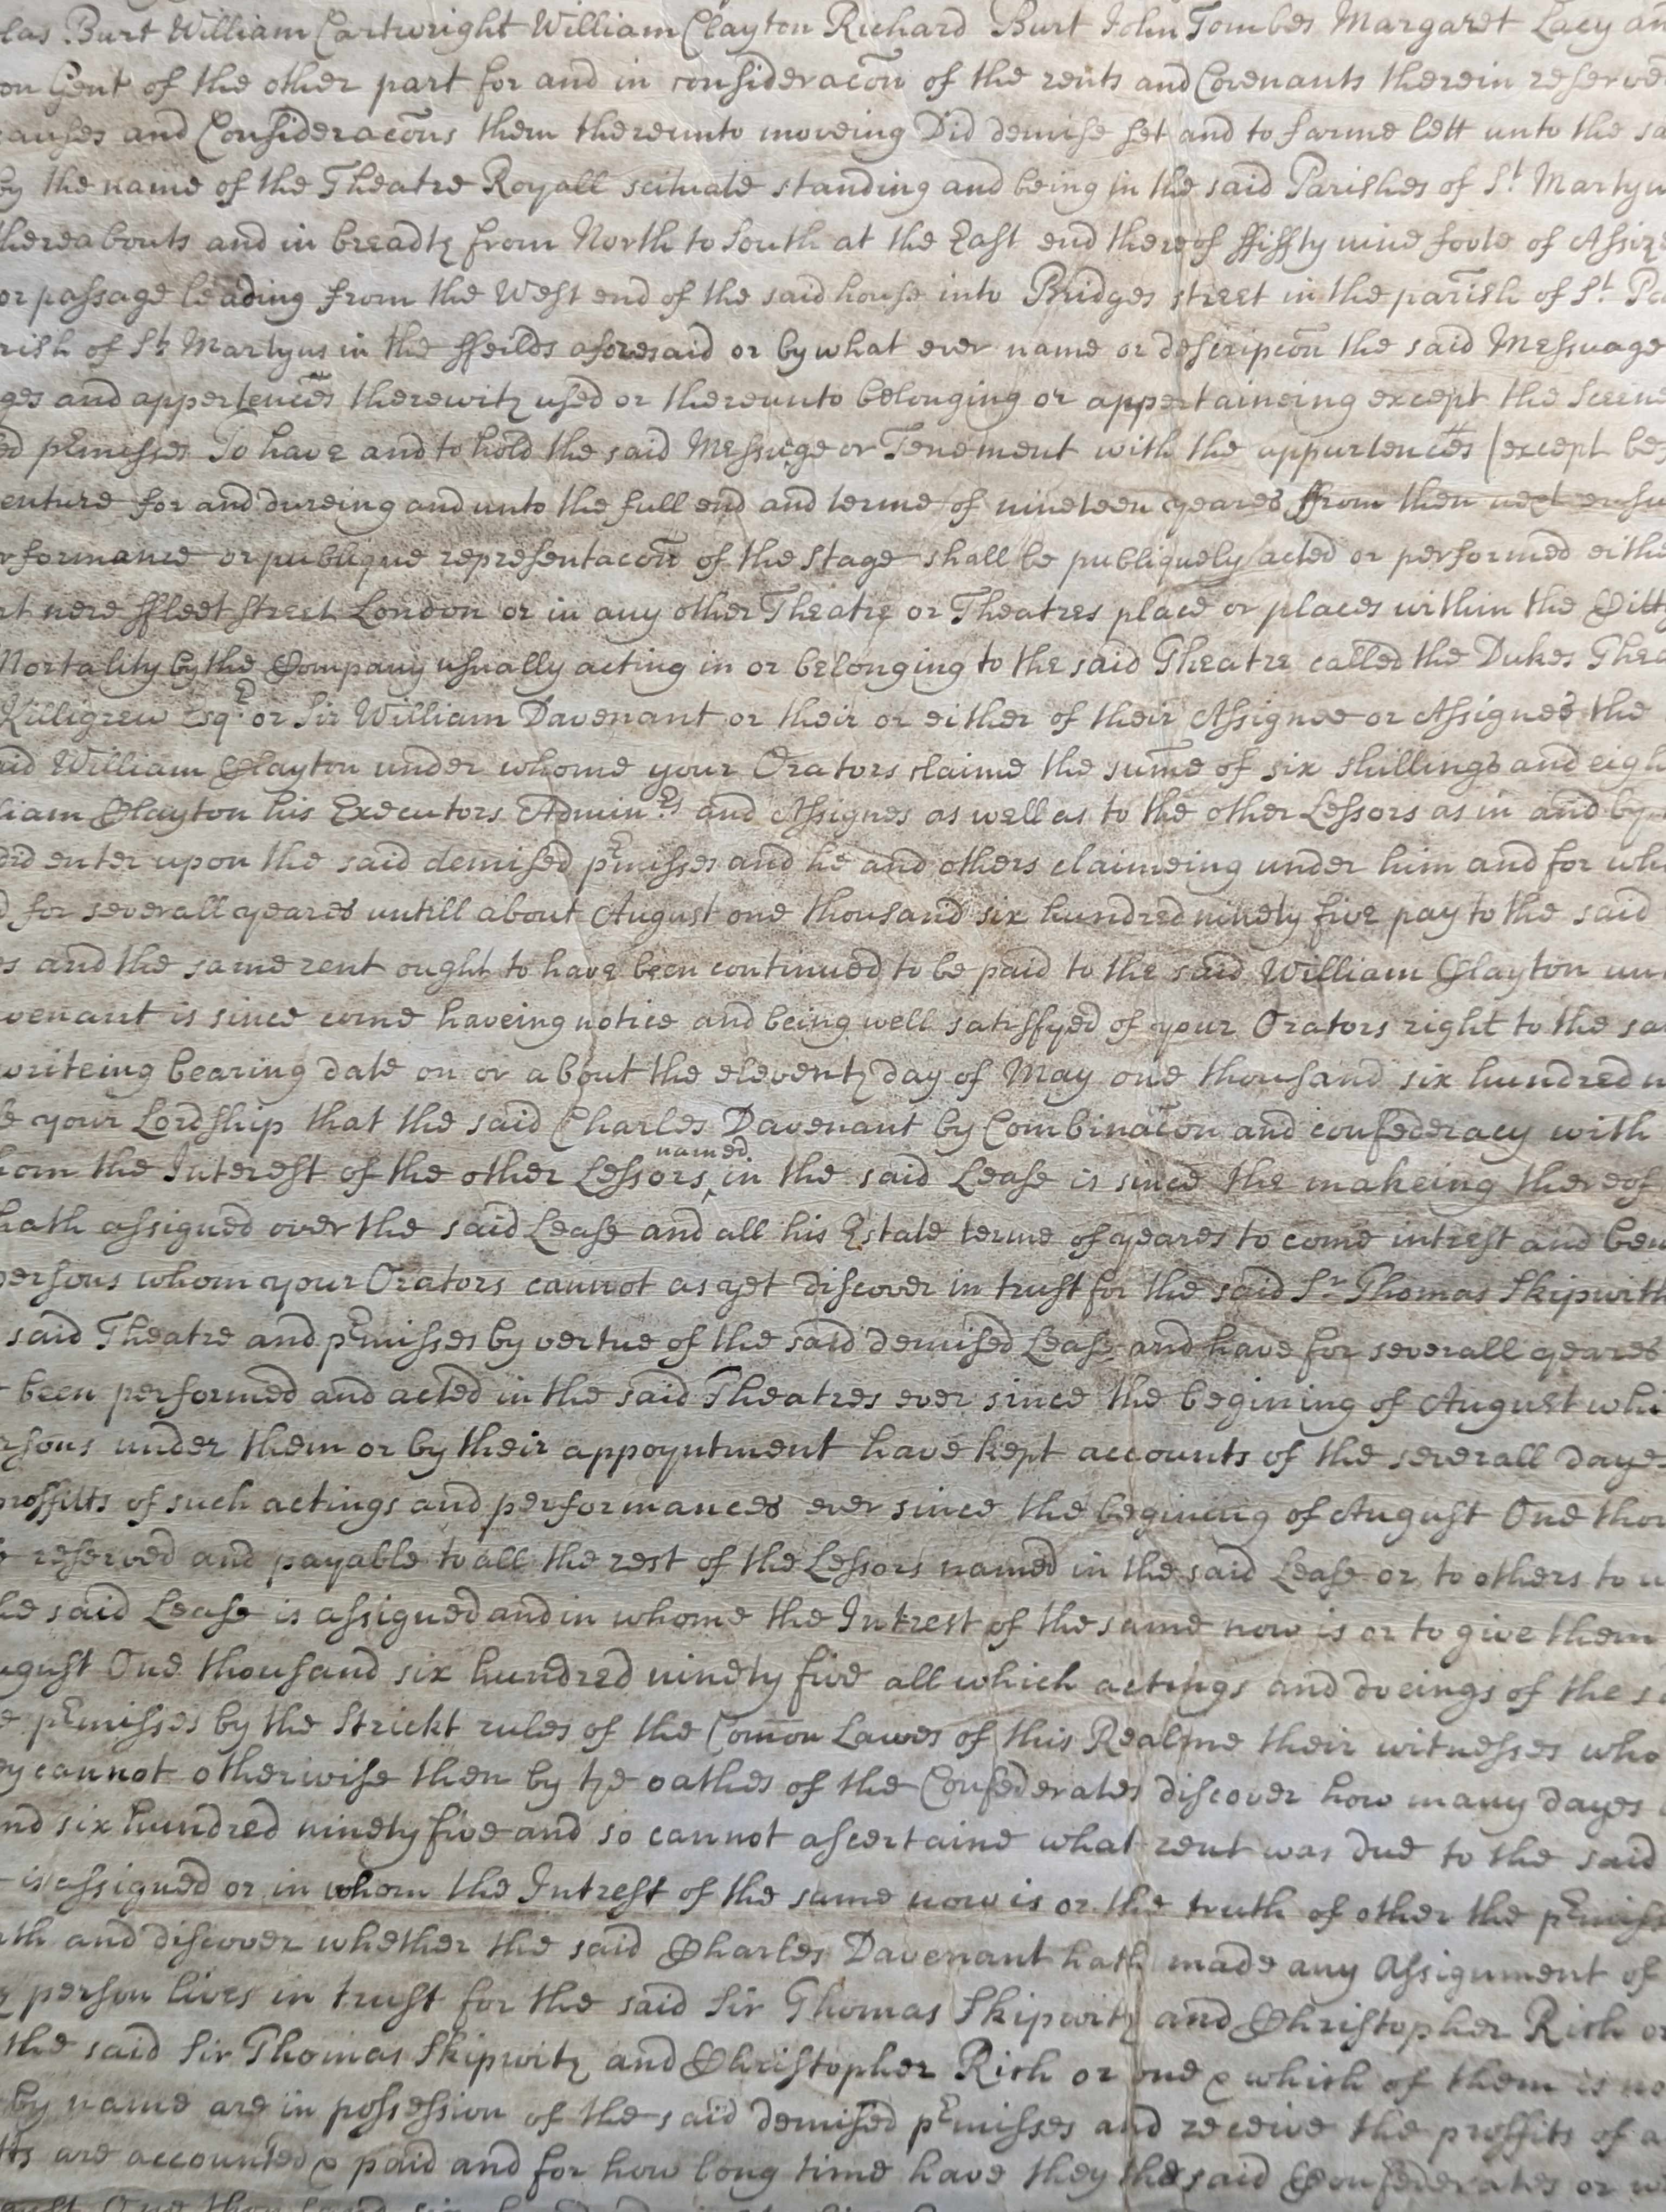 las Burt William Cartwright William Clayton Richard Burt John Tombes Margaret Lacy an
on Gent of the other part for and in consideracon of the rents and Covenants therein reserve
causes and Consideracons them thereunto moveing Did demise set and to farme lett unto the sa
by the name of the Theatre Royall scituate standing and being in the said Parishes of St Martyn
thereabouts and in breadth from North to South at the East end thereof ffiffty nine foote of Assize
or passage leading from the West end of the said house into Bridges street in the parish of St Pa
rish of St Martyns in the ffeilds aforesaid or by what ever name or descripcon the said Messuage
ges and appertences therewith used or thereunto belonging or appertaineing except the Sceene
ed pmisses To have and to hold the said Messuage or Tenement with the appurtences (except be
enture for and dureing and unto the full end and terme of nineteen yeares from then next ensu
rformance or publique representacon of the stage shall be publiquely acted or performed eithe
rt nere ffleet street London or in any other Theatre or Theatres place or places within the Citty
Mortality by the Company usually acting in or belonging to the said Theatre called the Dukes Thea
Killigrew Esqr or Sir William Davenant or their or either of their Assignee or Assignes the
aid William Clayton under whome your Orators claime the sume of six shillings and eigh
liam Clayton his Executors Adminrs and Assignes as well as to the other Lessors as in and by
did enter upon the said demised pmisses and he and others claimeing under him and for wh
d for severall yeares untill about August one thousand six hundred ninety five pay to the said
es and the same rent ought to have been continued to be paid to the said William Clayton un
venant is since come haveing notice and being well satisfyed of your Orators right to the sa
writeing bearing date on or about the eleventh day of May one thousand six hundred n
e your Lordship that the said Charles Davenant by Combinacon and confederacy with
hom the Interest of the other Lessors named in the said Lease is since the makeing thereof
hath assigned over the said Lease and all his Estate terme of yeares to come intrest and ben
persons whom your Orators cannot as yet discover in trust for the said Sr Thomas Skipwith
said Theatre and pmisses by vertue of the said demised Lease and have for severall yeares
been performed and acted in the said Theatres ever since the begining of August whi
rsons under them or by their appoyntment have kept accounts of the severall dayes
proffitts of such actings and performances ever since the begining of August One thou
e reserved and payable to all the rest of the Lessors named in the said Lease or to others to w
he said Lease is assigned and in whome the Intrest of the same now is or to give them
ugust One thousand six hundred ninety five all which actings and doeings of the s
e pmisses by the strickt rules of the Comon Lawes of this Realme their witnesses who
ey cannot otherwise then by the oathes of the Confederates discover how many dayes
nd six hundred ninety five and so cannot ascertaine what rent was due to the said
is assigned or in whom the Intrest of the same now is or the truth of other the pmiss
ath and discover whether the said Charles Davenant hath made any Assignment of
person lives in trust for the said Sir Thomas Skipwith and Christopher Rich or
the said Sir Thomas Skipwith and Christopher Rich or one & which of them is no
by name are in possession of the said demised pmisses and receive the proffits of a
tts are accounted & paid and for how long time have they the said Confederates or w